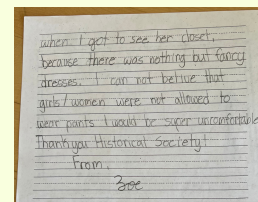 when I got to see her closet,
because there was nothing but fancy
dresses. I can not belive that
girls/women were not allowed to
wear pants I would be super uncomfortable
Thankyou Historical Society!
From,
Zoe